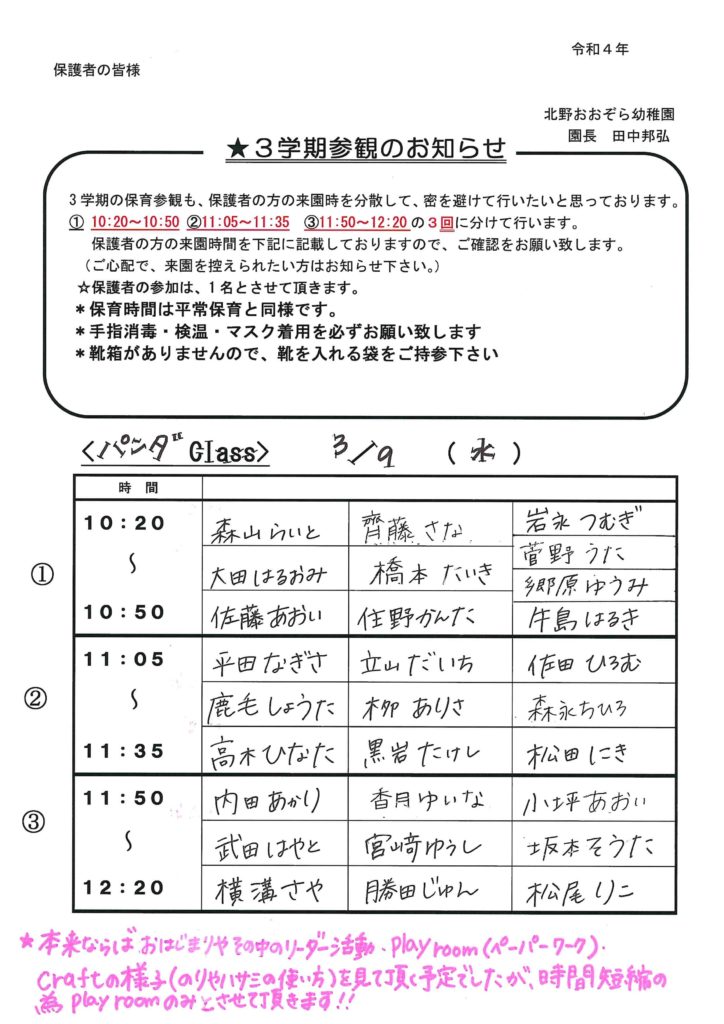 令和４年
保護者の皆様
北野おおぞら幼稚園
園長　田中邦弘
★３学期参観のお知らせ
３学期の保育参観も、保護者の方の来園時を分散して、密を避けて行いたいと思っております。
① 10:20～10:50 ②11:05～11:35 ③11:50～12:20 の３回に分けて行います。
保護者の方の来園時間を下記に記載しておりますので、ご確認をお願い致します。
（ご心配で、来園を控えられたい方はお知らせ下さい。）
☆保護者の参加は、１名とさせて頂きます。
＊保育時間は平常保育と同様です。
＊手指消毒・検温・マスク着用を必ずお願い致します
＊靴箱がありませんので、靴を入れる袋をご持参下さい
<パンダ Class> 3/9 （水）
時間
① 10:20 ～ 10:50
森山らいと 齊藤さな 岩永つむぎ
菅野うた
大田はるおみ 橋本たいき 郷原ゆうみ
佐藤あおい 住野かんた 牛島はるき
② 11:05 ～ 11:35
平田なぎさ 立山だいち 佐田ひろむ
鹿毛しょうた 柳ありさ 森永ちひろ
高木ひなた 黒岩たけし 松田にき
③ 11:50 ～ 12:20
内田あかり 香月ゆいな 小坪あおい
武田はやと 宮﨑ゆうし 坂本そうた
横溝さや 勝田じゅん 松尾りこ
★本来ならばおはじまりやその中のリーダー活動・Play room(ペーパーワーク)・
Craftの様子(のりやハサミの使い方)を見て頂く予定でしたが、時間短縮の
為 Play roomのみとさせて頂きます!!